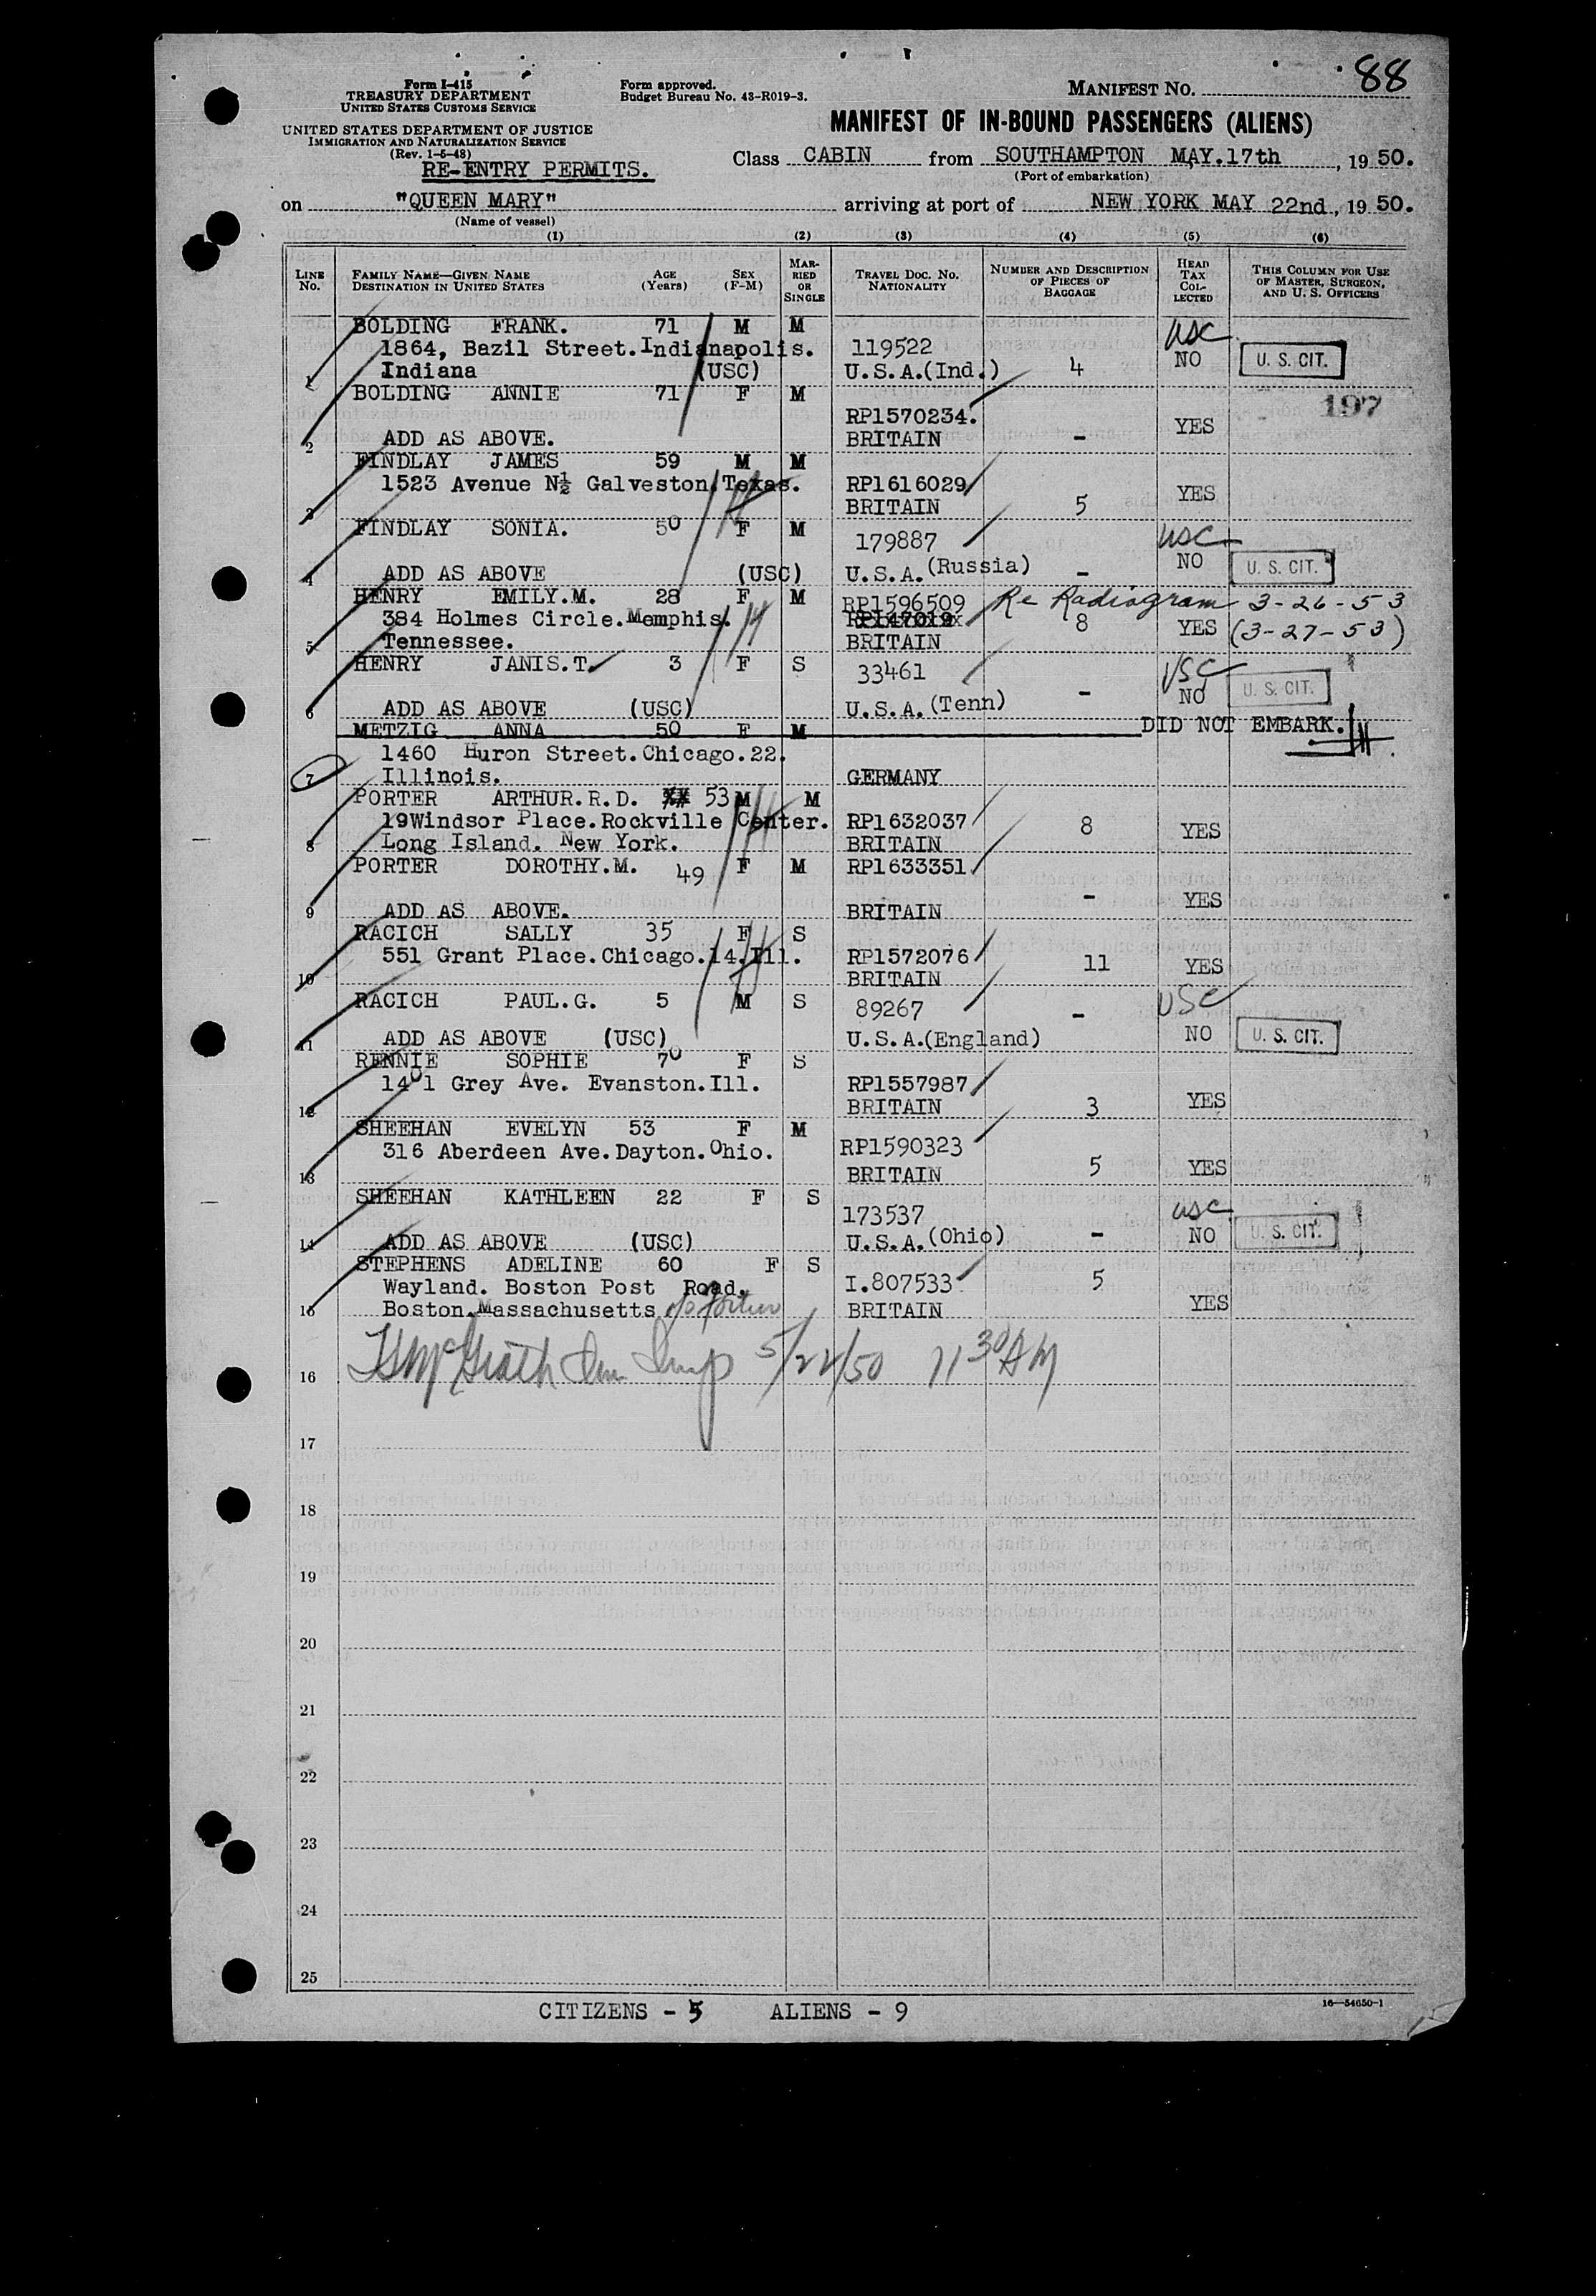 Form I-415
TREASURY DEPARTMENT
UNITED STATES CUSTOMS SERVICE
UNITED STATES DEPARTMENT OF JUSTICE
IMMIGRATION AND NATURALIZATION SERVICE
(Rev. 1-5-48)
RE-ENTRY PERMITS.
Form approved.
Budget Bureau No. 43-R019-3.
MANIFEST NO. 88
MANIFEST OF IN-BOUND PASSENGERS (ALIENS)
Class CABIN from SOUTHAMPTON MAY.17th, 19 50.
(Port of embarkation)
on "QUEEN MARY" arriving at port of NEW YORK MAY 22nd, 19 50.
(Name of vessel)
(1) (2) (3) (4) (5) (6)
LINE NO. FAMILY NAME—GIVEN NAME DESTINATION IN UNITED STATES AGE (Years) SEX (F-M) MARRIED OR SINGLE TRAVEL DOC. NO. NATIONALITY NUMBER AND DESCRIPTION OF PIECES OF BAGGAGE HEAD TAX COLLECTED THIS COLUMN FOR USE OF MASTER, SURGEON, AND U. S. OFFICERS
BOLDING FRANK. 71 M M USC
1864, Bazil Street.Indianapolis. 119522 NO U. S. CIT.
1 Indiana (USC) U.S.A.(Ind.) 4
BOLDING ANNIE 71 F M 197
RP1570234. YES
2 ADD AS ABOVE. BRITAIN -
FINDLAY JAMES 59 M M
1523 Avenue N½ Galveston,Texas. RP1616029 YES
3 BRITAIN 5
FINDLAY SONIA. 50 F M USC
179887 NO U. S. CIT.
4 ADD AS ABOVE (USC) U.S.A.(Russia) -
HENRY EMILY.M. 28 F M RP1596509 Re Radiogram 3-26-53
384 Holmes Circle.Memphis. 8 YES (3-27-53)
5 Tennessee. BRITAIN
HENRY JANIS.T. 3 F S 33461 USC
NO U. S. CIT.
6 ADD AS ABOVE (USC) U.S.A.(Tenn) -
METZIG ANNA 50 F M DID NOT EMBARK.
1460 Huron Street.Chicago.22.
7 Illinois. GERMANY
PORTER ARTHUR.R.D. 53 M M
19Windsor Place.Rockville Center. RP1632037 8 YES
8 Long Island. New York. BRITAIN
PORTER DOROTHY.M. 49 F M RP1633351
- YES
9 ADD AS ABOVE. BRITAIN
RACICH SALLY 35 F S
551 Grant Place.Chicago.14.Ill. RP1572076 11 YES
10 BRITAIN
RACICH PAUL.G. 5 M S 89267 - USC
11 ADD AS ABOVE (USC) U.S.A.(England) NO U. S. CIT.
RENNIE SOPHIE 70 F S
1401 Grey Ave. Evanston.Ill. RP1557987
12 BRITAIN 3 YES
SHEEHAN EVELYN 53 F M
316 Aberdeen Ave.Dayton.Ohio. RP1590323
13 BRITAIN 5 YES
SHEEHAN KATHLEEN 22 F S
173537 USC
14 ADD AS ABOVE (USC) U.S.A.(Ohio) - NO U. S. CIT.
STEPHENS ADELINE 60 F S
Wayland. Boston Post Road. I.807533 5
15 Boston.Massachusetts BRITAIN YES
16 McGrath Imm Insp 5/22/50 11 30 AM
17
18
19
20
21
22
23
24
25
CITIZENS - 5 ALIENS - 9
16—54650-1